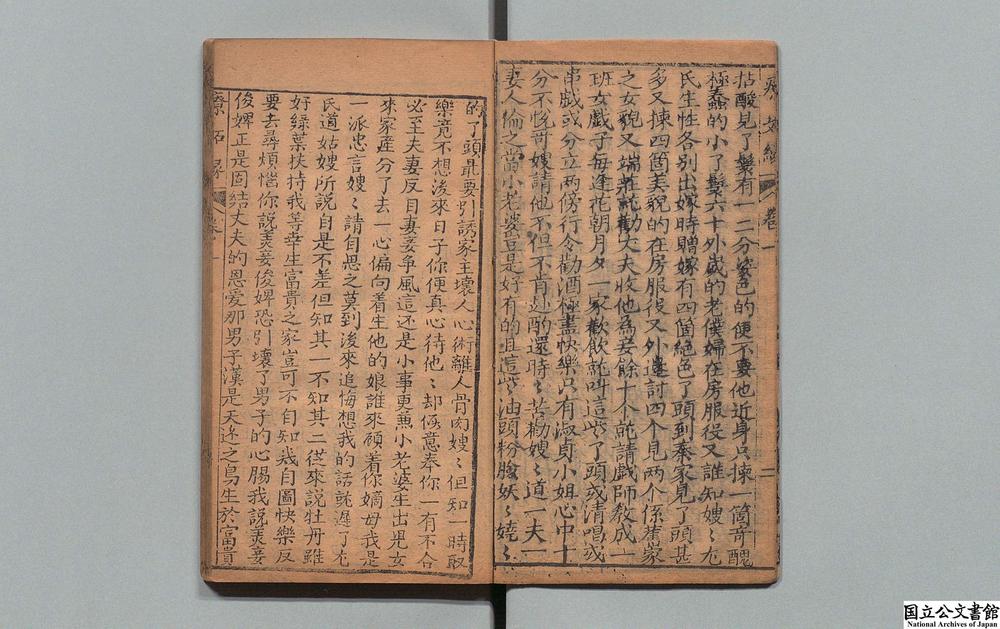 療妬緣 卷一
拈酸見了鬟有一二分姿色的便不要他近身只揀一箇奇醜
極蠢的小了鬟六十外歲的老僕婦在房服役又誰知嫂〻尤
氏生性各別出嫁時贈嫁有四箇絕色了頭到秦家見了頭甚
多又揀四箇美貌的在房服役又外邊討四个見兩个係舊家
之女貌又端莊就勸丈夫收他為妾餘十个就請戲師教成一
班女戲子每逢花朝月夕一家歡飲就叫這些了頭或清唱或
串戲或分立兩傍行令勸酒極盡快樂只有淑貞小姐心中十
分不悅哥嫂請他不但不肯赴酌還時〻苦勸嫂〻道一夫一
妻人倫之當小老婆豈是好有的且這些油頭粉臉妖〻嬈〻
的了頭最要引誘家主壞人心術離人骨肉嫂〻但知一時取
樂竟不想後來日子你便真心待他〻却假意奉你一有不合
必至夫妻反目妻妾爭風這还是小事更兼小老婆生出兒女
來家產分了去一心偏向着生他的娘誰來顧着你嫡母我是
一派忠言嫂〻請自思之莫到後來追悔想我的話就遲了尤
氏道姑嫂所說自是不差但知其一不知其二從來說牡丹雖
好綠葉扶持我等幸生富貴之家豈可不自知哉自圖快樂反
要去尋煩惱你說美妾俊婢恐引壞了男子的心腸我說美妾
俊婢正是固結丈夫的恩愛那男子漢是天边之鳥生於富貴
療妬緣 卷一
国立公文書館
National Archives of Japan